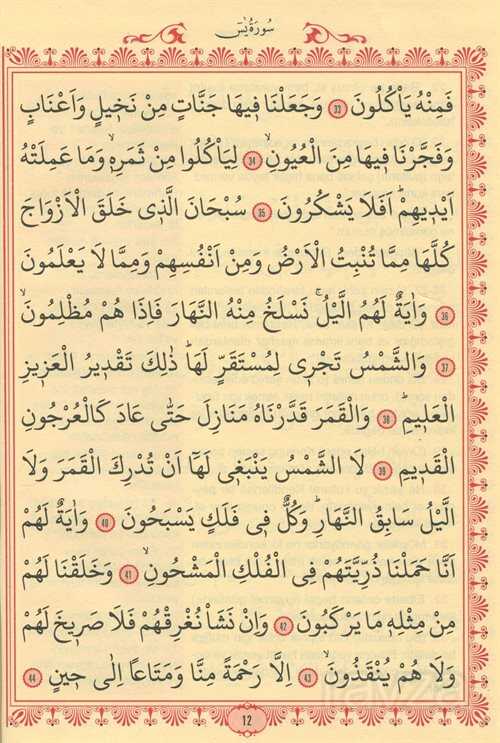 سُورَةُ يٰسٓ
فَمِنْهُ يَأْكُلُونَ ﴿33﴾ وَجَعَلْنَا ف۪يهَا جَنَّاتٍ مِنْ نَخ۪يلٍ وَاَعْنَابٍ
وَفَجَّرْنَا ف۪يهَا مِنَ الْعُيُونِۙ ﴿34﴾ لِيَأْكُلُوا مِنْ ثَمَرِه۪ۙ وَمَا عَمِلَتْهُ
اَيْد۪يهِمْۜ اَفَلَا يَشْكُرُونَ ﴿35﴾ سُبْحَانَ الَّذ۪ي خَلَقَ الْاَزْوَاجَ
كُلَّهَا مِمَّا تُنْبِتُ الْاَرْضُ وَمِنْ اَنْفُسِهِمْ وَمِمَّا لَا يَعْلَمُونَ
﴿36﴾ وَاٰيَةٌ لَهُمُ الَّيْلُۚ نَسْلَخُ مِنْهُ النَّهَارَ فَاِذَا هُمْ مُظْلِمُونَۙ
﴿37﴾ وَالشَّمْسُ تَجْر۪ي لِمُسْتَقَرٍّ لَهَاۜ ذٰلِكَ تَقْد۪يرُ الْعَز۪يزِ
الْعَل۪يمِۜ ﴿38﴾ وَالْقَمَرَ قَدَّرْنَاهُ مَنَازِلَ حَتّٰى عَادَ كَالْعُرْجُونِ
الْقَد۪يمِ ﴿39﴾ لَا الشَّمْسُ يَنْبَغ۪ي لَهَٓا اَنْ تُدْرِكَ الْقَمَرَ وَلَا
الَّيْلُ سَابِقُ النَّهَارِۜ وَكُلٌّ ف۪ي فَلَكٍ يَسْبَحُونَ ﴿40﴾ وَاٰيَةٌ لَهُمْ
اَنَّا حَمَلْنَا ذُرِّيَّتَهُمْ فِي الْفُلْكِ الْمَشْحُونِۙ ﴿41﴾ وَخَلَقْنَا لَهُمْ
مِنْ مِثْلِه۪ مَا يَرْكَبُونَ ﴿42﴾ وَاِنْ نَشَأْ نُغْرِقْهُمْ فَلَا صَر۪يخَ لَهُمْ
وَلَا هُمْ يُنْقَذُونَۙ ﴿43﴾ اِلَّا رَحْمَةً مِنَّا وَمَتَاعًا اِلٰى ح۪ينٍ ﴿44﴾
12